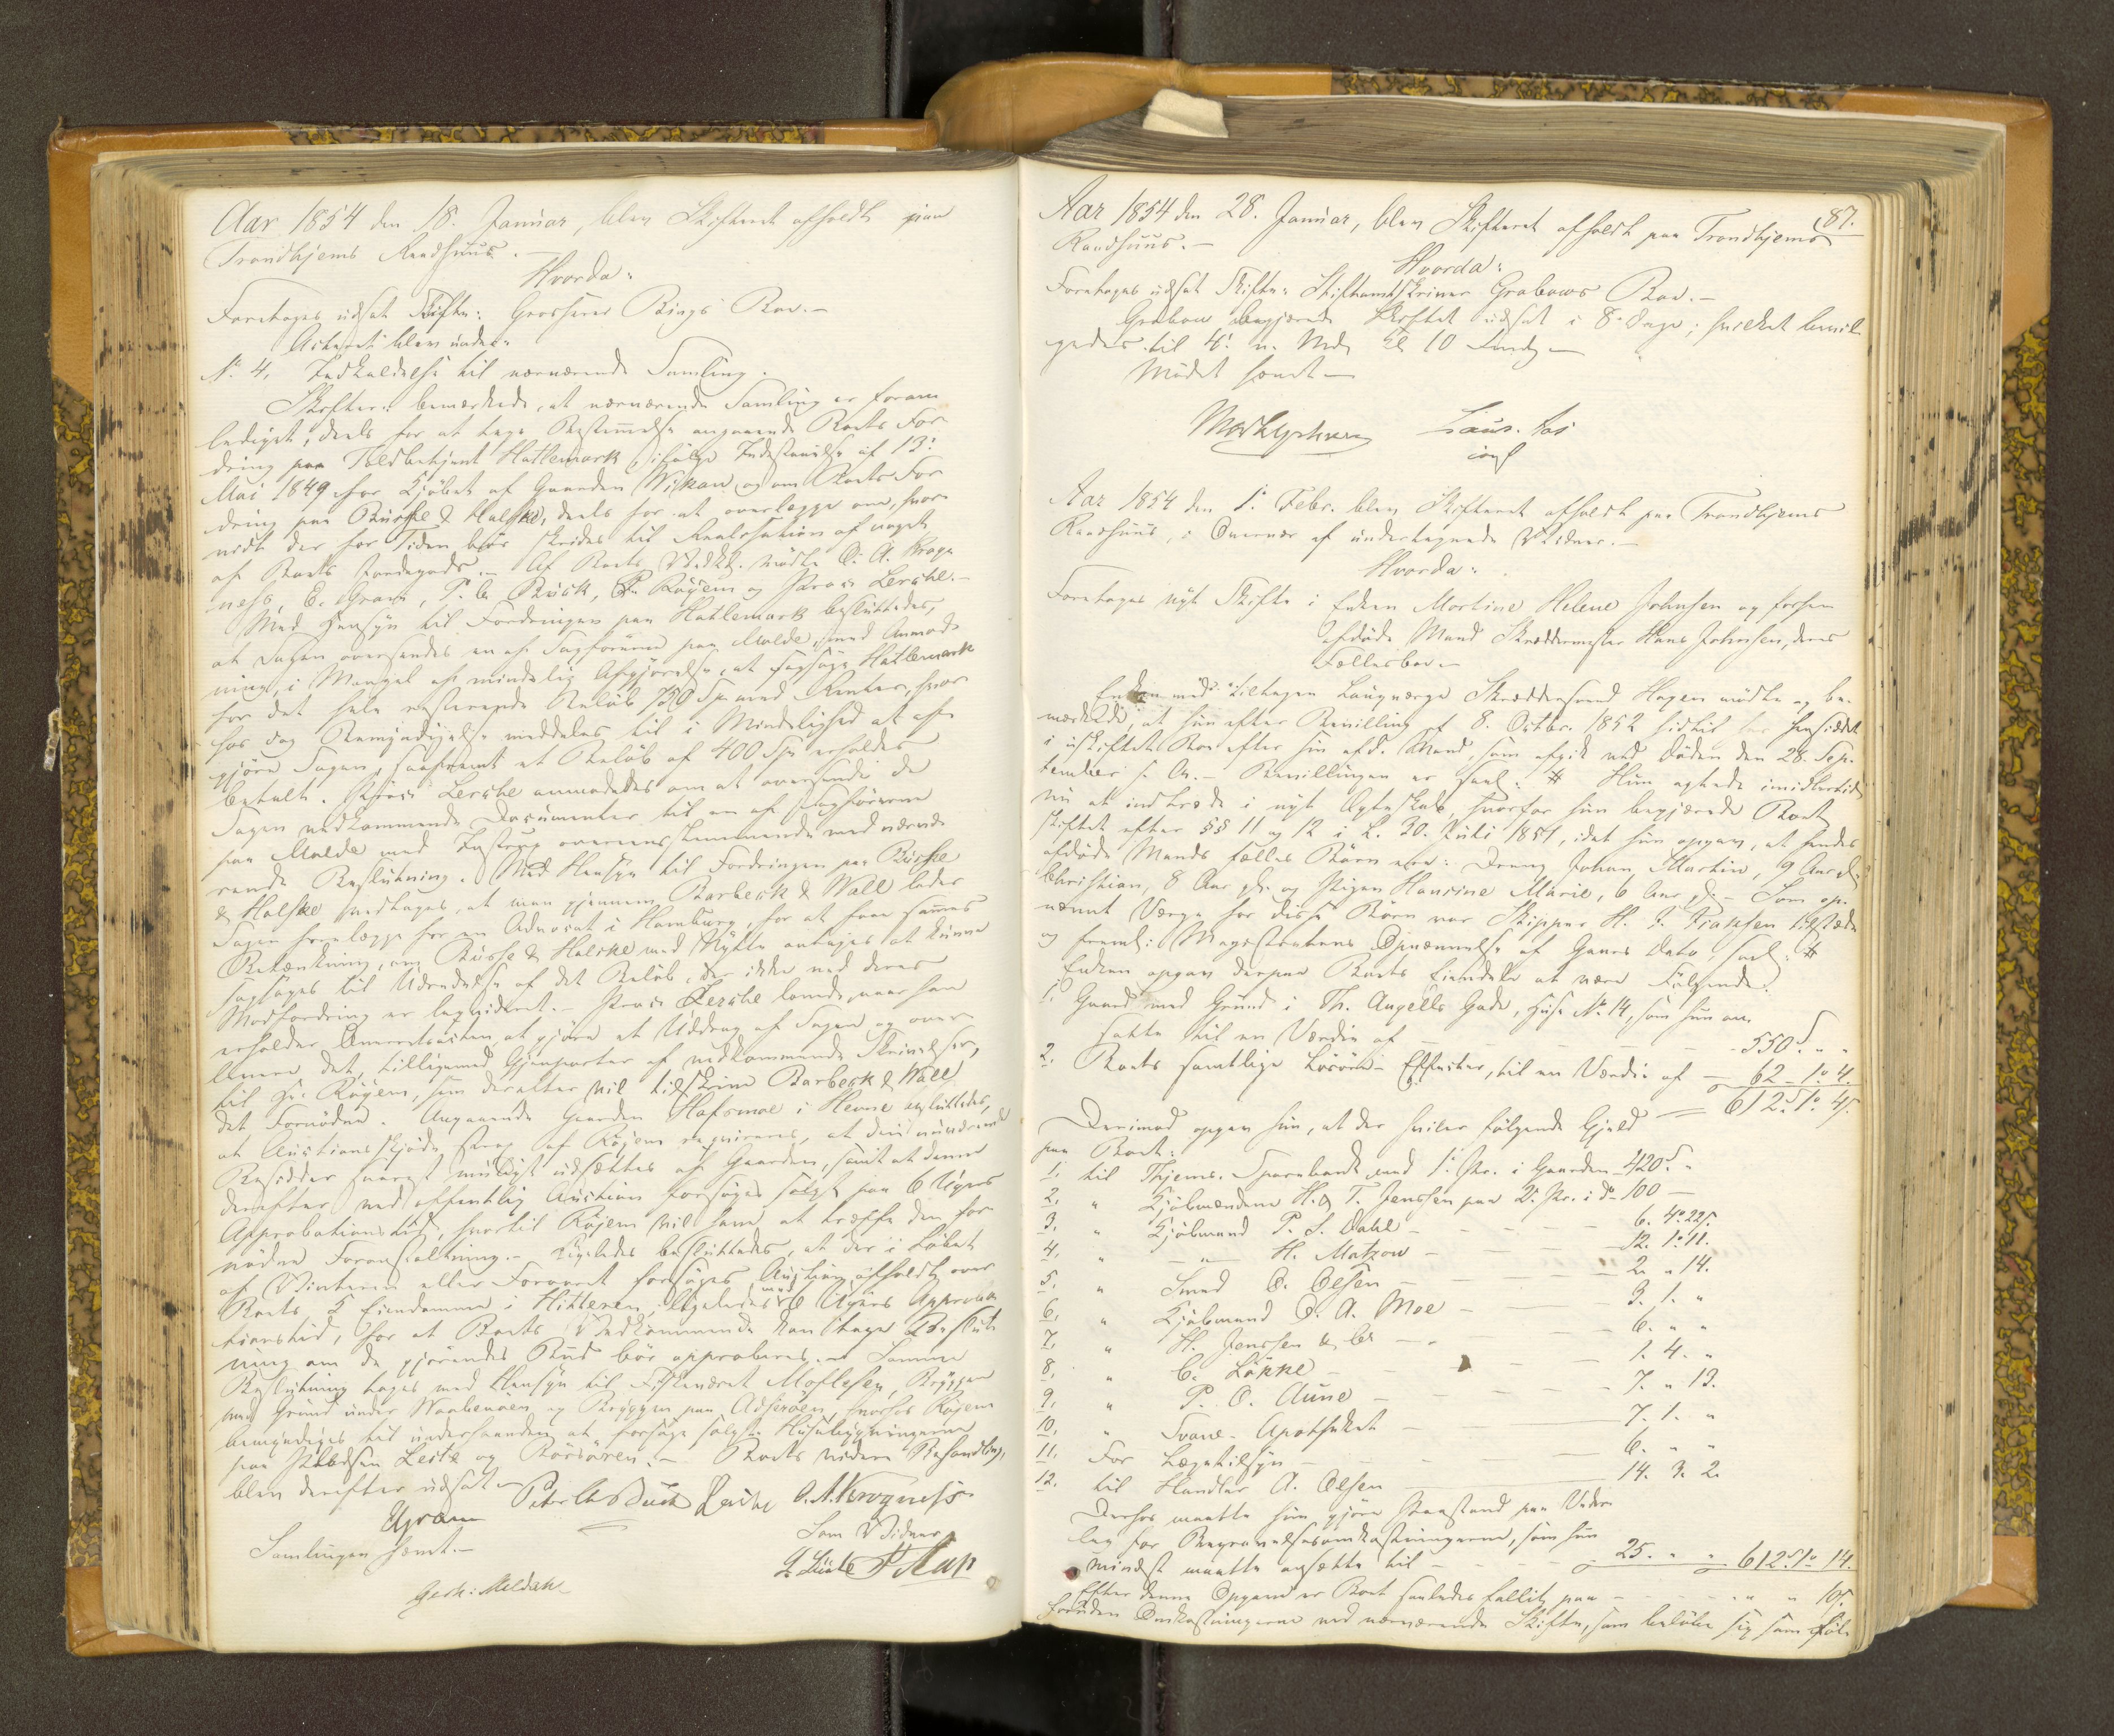 Aar 1854 den 18. Januar, blev Skifteret afholdt paa
Trondhjems Raadhuus.
Hvorda:
Foretoges udsat Skifte: Grosserer Bings Boe.-
Acteret blev under:
No 4. Indkaldelse til nærværende Samling.
Skifter: bemærkede, at nærværende Samling er foran
lediget, deels for at tage Bestemmelse angaaende Boets For
dring paa Toldbetjent Hatlemark, ifølge Indestaaelse af 13:
Mai 1849 for Kjøbet af Gaarden Wikan og om Boets For
dring paa Busse & Halske, deels for at overlægge om, hvor
vidt der for Tiden bør skrides til Realisation af noget
af Boets Jordegods. Af Boets Vedkk. mødte O. A. Krog
ness, E. Gram, P. A. Buck, Røgem og Proc: Lerche.-
Med Hensyn til Fordringen paa Hatlemark besluttedes,
at Sagen oversendes en af Sagførerne paa Molde, med Anmod
ning, i Mangel af mindelig Afgjørelse, at sagsøge Hatlemark
for det hele resterende Beløb 750 Sp. med Renter, hvor
hos dog Bemyndigelse meddeles til i Mindelighed at af
gjøre Sagen, saafremt et Beløb af 400 Sp. erholdes
betalt. Proc: Lerche anmodedes om at oversende de
Sagen vedkommende Documenter til en af Sagførerne
paa Molde med Instrux overeensstemmende med nærvæ
rende Beslutning. Med Hensyn til Fordringen paa Busse
& Halske vedtages, at man gjennem Barbeck & Wall lader
Sagen forelægge for en Advocat i Hamburg, for at faae sammes
Betænkning, om Busse & Halske med Nytte antages at kunne
sagsøges til Udredelse af det Beløb, der ikke ved deres
Modfordring er liqvideret. Proc: Lerche lovede, naar han
erholder Anmodningen, at gjøre et Uddrag af Sagen og over
levere det, tilligemed Gjenparter af vedkommende Skrivelser,
til Hr. Røgem, som derefter vil tilskrive Barbeck & Wall
det Fornødne. Angaaende Gaarden Hafsmoe i Hevne besluttedes,
at Auctionsskjøde strax af Røgem reqvireres, at den nuværende
Besidder snarest muligst udsættes af Gaarden, samt at denne
derefter ved offentlig Auction forsøges solgt paa 6 Ugers
Approbationstid, hvortil Røgem vil have at træffe den for
nødne Foranstaltning.- Ligeledes besluttedes, at der i Løbet
af Vinteren eller Foraaret forsøges Auction afholdt over
Boets 2 Eiendomme i Hitteren, ligeledes med 6 Ugers Approba
tionstid, for at Boets Vedkommende kan tage Beslut
ning om de gjørendes Bud bør approberes. Samme
Beslutning tages med Hensyn til Fiskeværet Moflesen, Brygge
med Grund under Waabenoen og Bryggen paa Adserøen, hvorhos Røgem
bemyndiges til underhaanden at forsøge solgte Huusebygningerne
paa Pladsen Leite og Børøsøren.- Boets videre Behandling
blev derefter udsat.
EGram Peter A Buck Lerche O. A. Krogness
Samlingen hævet.- Som Vidner
Gesk: Meldahl

87.
Aar 1854 den 28. Januar, blev Skifteret afholdt paa Trondhjems
Raadhuus.-
Hvorda:
Foretoges udsat Skifte: Stiftamtskriver Grabows Boe.-
Grabow begjærede Skiftet udsat i 8 Dage; hvilket bevil
gedes til 4: n. Md. Kl 10 Form.
Mødet hævet

Aar 1854 den 1: Febr. blev Skifteret afholdt paa Trondhjems
Raadhuus, i Overvær af undertegnede Vidner.-
Hvorda:
Foretoges nyt Skifte i Enken Martine Helene Johnsen og forhen
afdøde Mand Skræddermester Hans Johnsen, deres
Fællesboe.-
Enken med tiltagen Laugværge Skræddersvend Hagen mødte og be-
mærkede, at hun efter Bevilling af 8. Octbr. 1852 hidtil har hensiddet
i uskiftet Boe efter sin afd. Mand, som afgik ved Døden den 28. Sep-
tember s. A.- Bevillingen er saal: # Hun agtede imidlertid
nu at indtræde i nyt Ægteskab, hvorfor hun begjærede Boet
skiftet efter §§ 11 og 12 i L. 30. Juli 1851, idet hun opgav, at hendes
afdøde Mands fælles Børn ere: Dreng Johan Martin, 9 Aar gl.
Christian, 8 Aar gl. og Pigen Hansine Marie, 6 Aar gl.- Som op-
nævnt Værge for disse Børn var Skipper H. J. tilstæde
og freml: Magistratens Opnævnelse af Gaars Dato, saal: #
Enken opgav derpaa Boets Eiendele at være Følgende:
1. Gaard med Grund i Th. Angells Gade, Huus No 14, som hun an-
satte til en Værdie af - - - - 550 S. " "
2. Boets samtlige Løsøre-Effecter, til en Værdie af - 62 - 1o 4.
612 S. 1o 4s.
Derimod opgav hun, at der hviler følgende Gjeld
paa Boet:
1. til Thjems. Sparebank med 1: Pr. i Gaarden 420 S. "
2. " Kjøbmændene H. & T. Jenssen paa 2: Pr. i do 100 -
3. " Kjøbmand P. S. Dahl - - - 6. 4o 22s.
4. " - " - H. Matzow - - - 12. 1o 11.
5. " Smed O. Olsen - - - 2. " 14.
6. " Kjøbmand O. A. Moe - - - 3. 1. "
7. " H. Jenssen & Co - - - 6. " "
8. " C. Løkke - - - 1. 4. "
9. " P. O. Aune - - - 7. " 13.
10. " Svane-Apotheket - - 7. 1. "
11. For Lægetilsyn - - - 6. " "
12. til Handler A. Olsen - - 14. 3. 2.
Derhos maatte hun gjøre Paastand paa Veder-
lag for Begravelsesomkostningerne, som hun
mindst maatte ansætte til - - - 25. " " 612 S. 1o 14.
Efter denne Opgave er Boet saaledes fallit paa - - - " " 10s.
foruden Omkostningerne ved nærværende Skifte, som beløbe sig som føl-